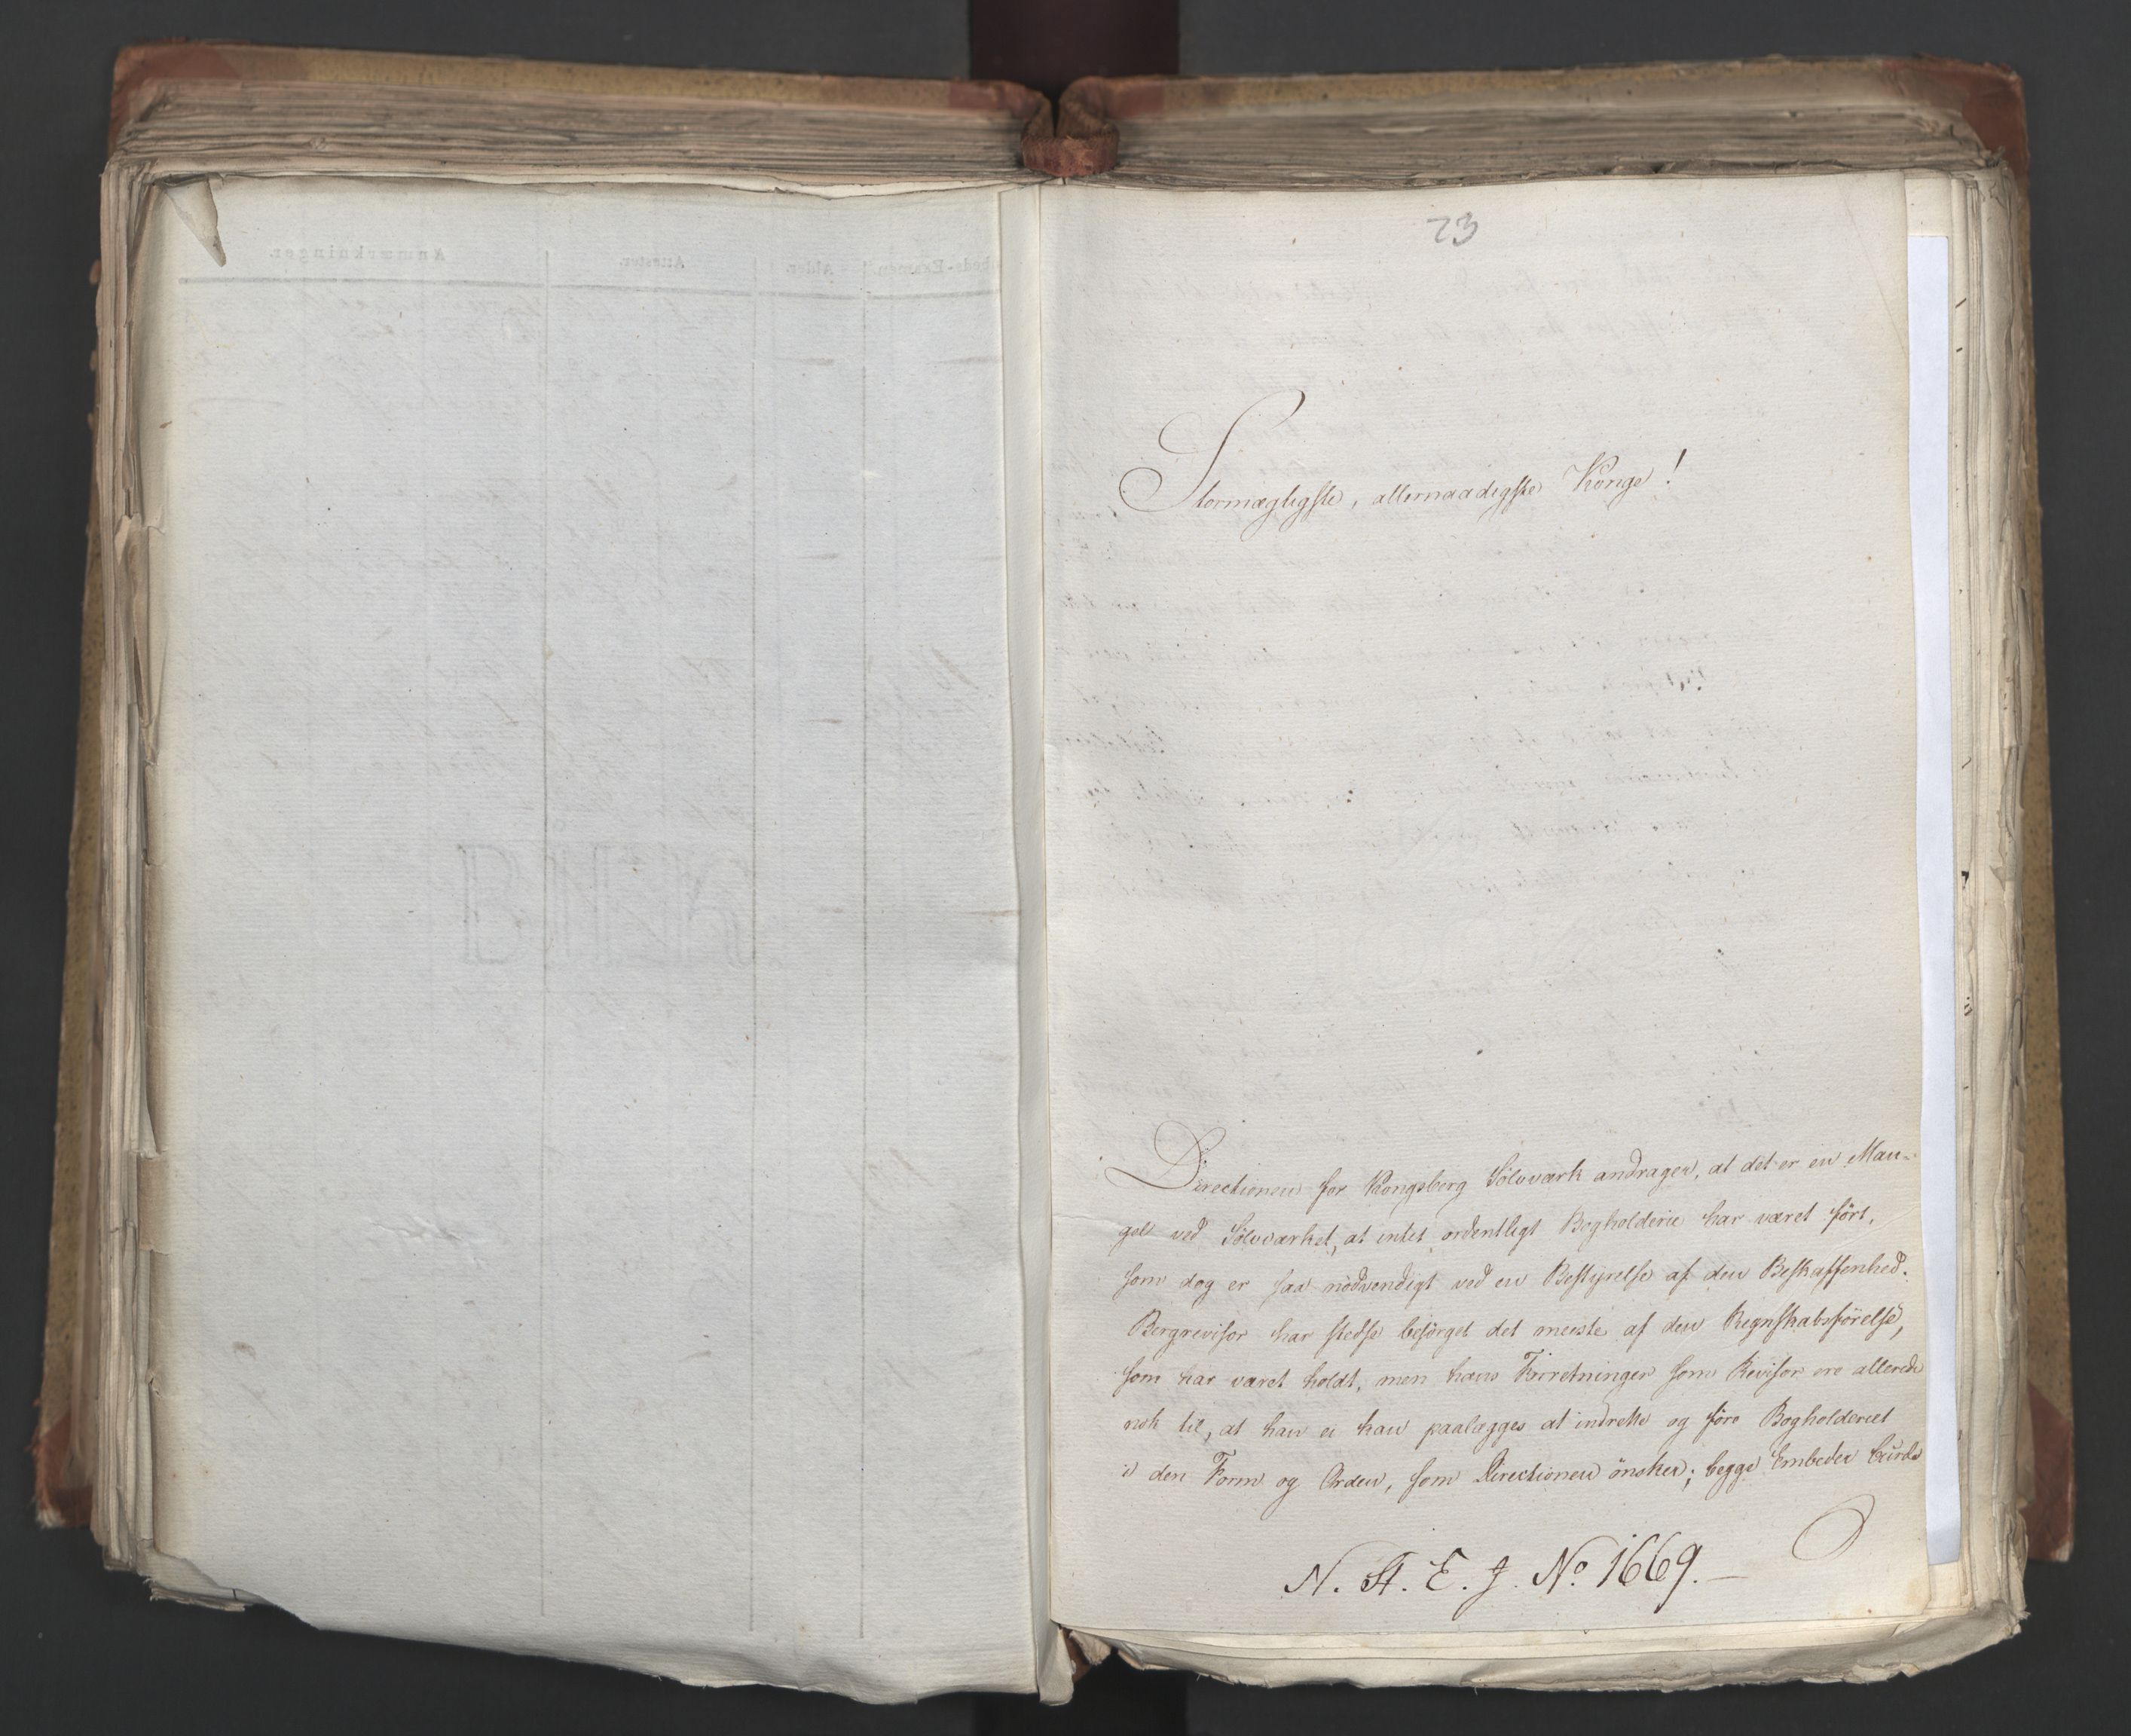 23
Stormægtigste, allernaadigste Konge!
Directionen for Kongsberg Sölvværk andrager, at det er en Man-
gel ved Sölvværket, at intet ordentligt Bogholderie har været fört,
som dog er saa nödvendigt ved en Bestyrelse af den Beskaffenhed.
Bergrevisor har stedse besörget det meeste af den Regnskabsförelse,
som har været holdt, men hans Forretninger som Revisor ere allerede
nok til, at han ei kan paalægges at indrette og före Bogholderiet
i den Form og Orden, som Directionen önsker; begge Embeder burde
N. St. E. J. No. 1669.
Anmærkninger.
Attester.
Alder.
beds-Examen